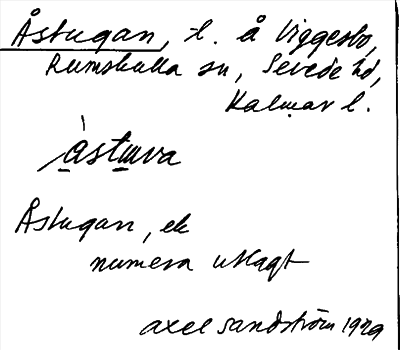 Åstugan, t. å Viggesbo,
Rumskulla sn, Sevede hd,
Kalmar l.
åstuva
Åstugan, ek
numera utlagt
Axel Sandström 1929